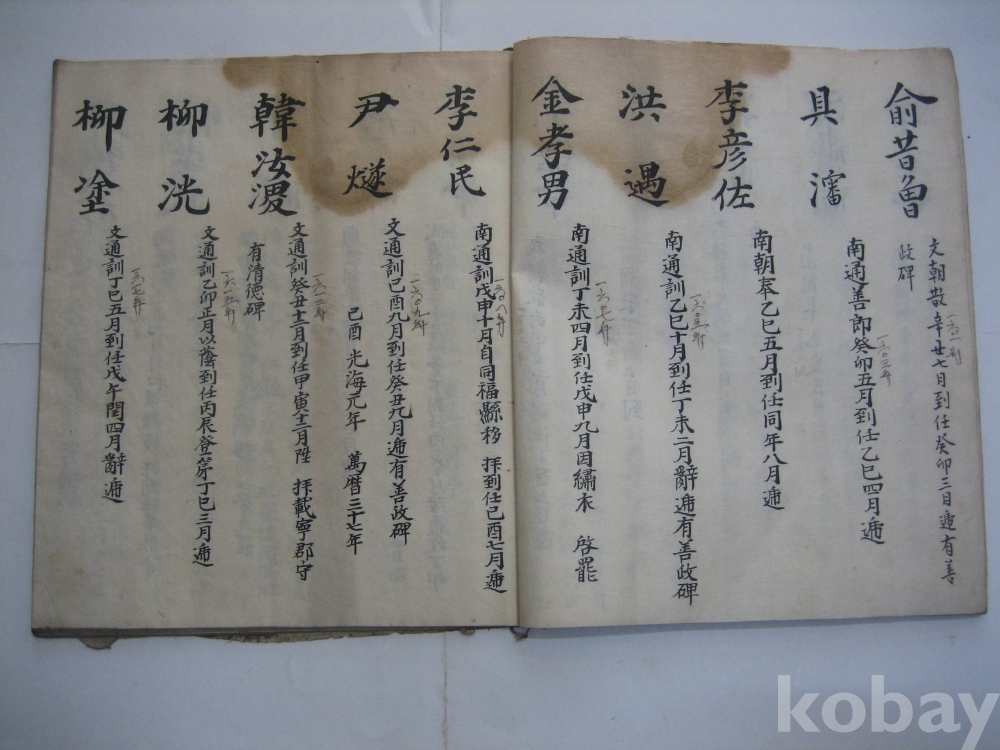 俞昔曾
文朝散辛丑七月到任癸卯三日遞有善
政碑
一六〇一年
具瀋
南通善郎癸卯五月到任乙巳四月遞
一六〇三年
李彦佐
南朝奉乙巳五月到任同年八月遞
洪遇
南通訓乙巳十月到任丁未二月辭遞有善政碑
一六〇五年
金孝男
南通訓丁未四月到任戊申九月因繡衣 啓罷
一六〇七年
李仁民
南通訓戊申十月自同福縣移 拝到任己酉七月遞
一六〇八年
尹燧
文通訓己酉九月到任癸丑九月遞有善政碑
一六〇九年
己酉 光海元年 萬曆三十七年
韓汝溭
文通訓癸丑十二月到任甲寅十二月陞 拝載寧郡守
有清德碑
柳洸
文通訓乙卯正月以蔭到任丙辰登第丁巳三月遞
一六一五年
柳塗
文通訓丁巳五月到任戊午閏四月辭遞
一六一七年
kobay